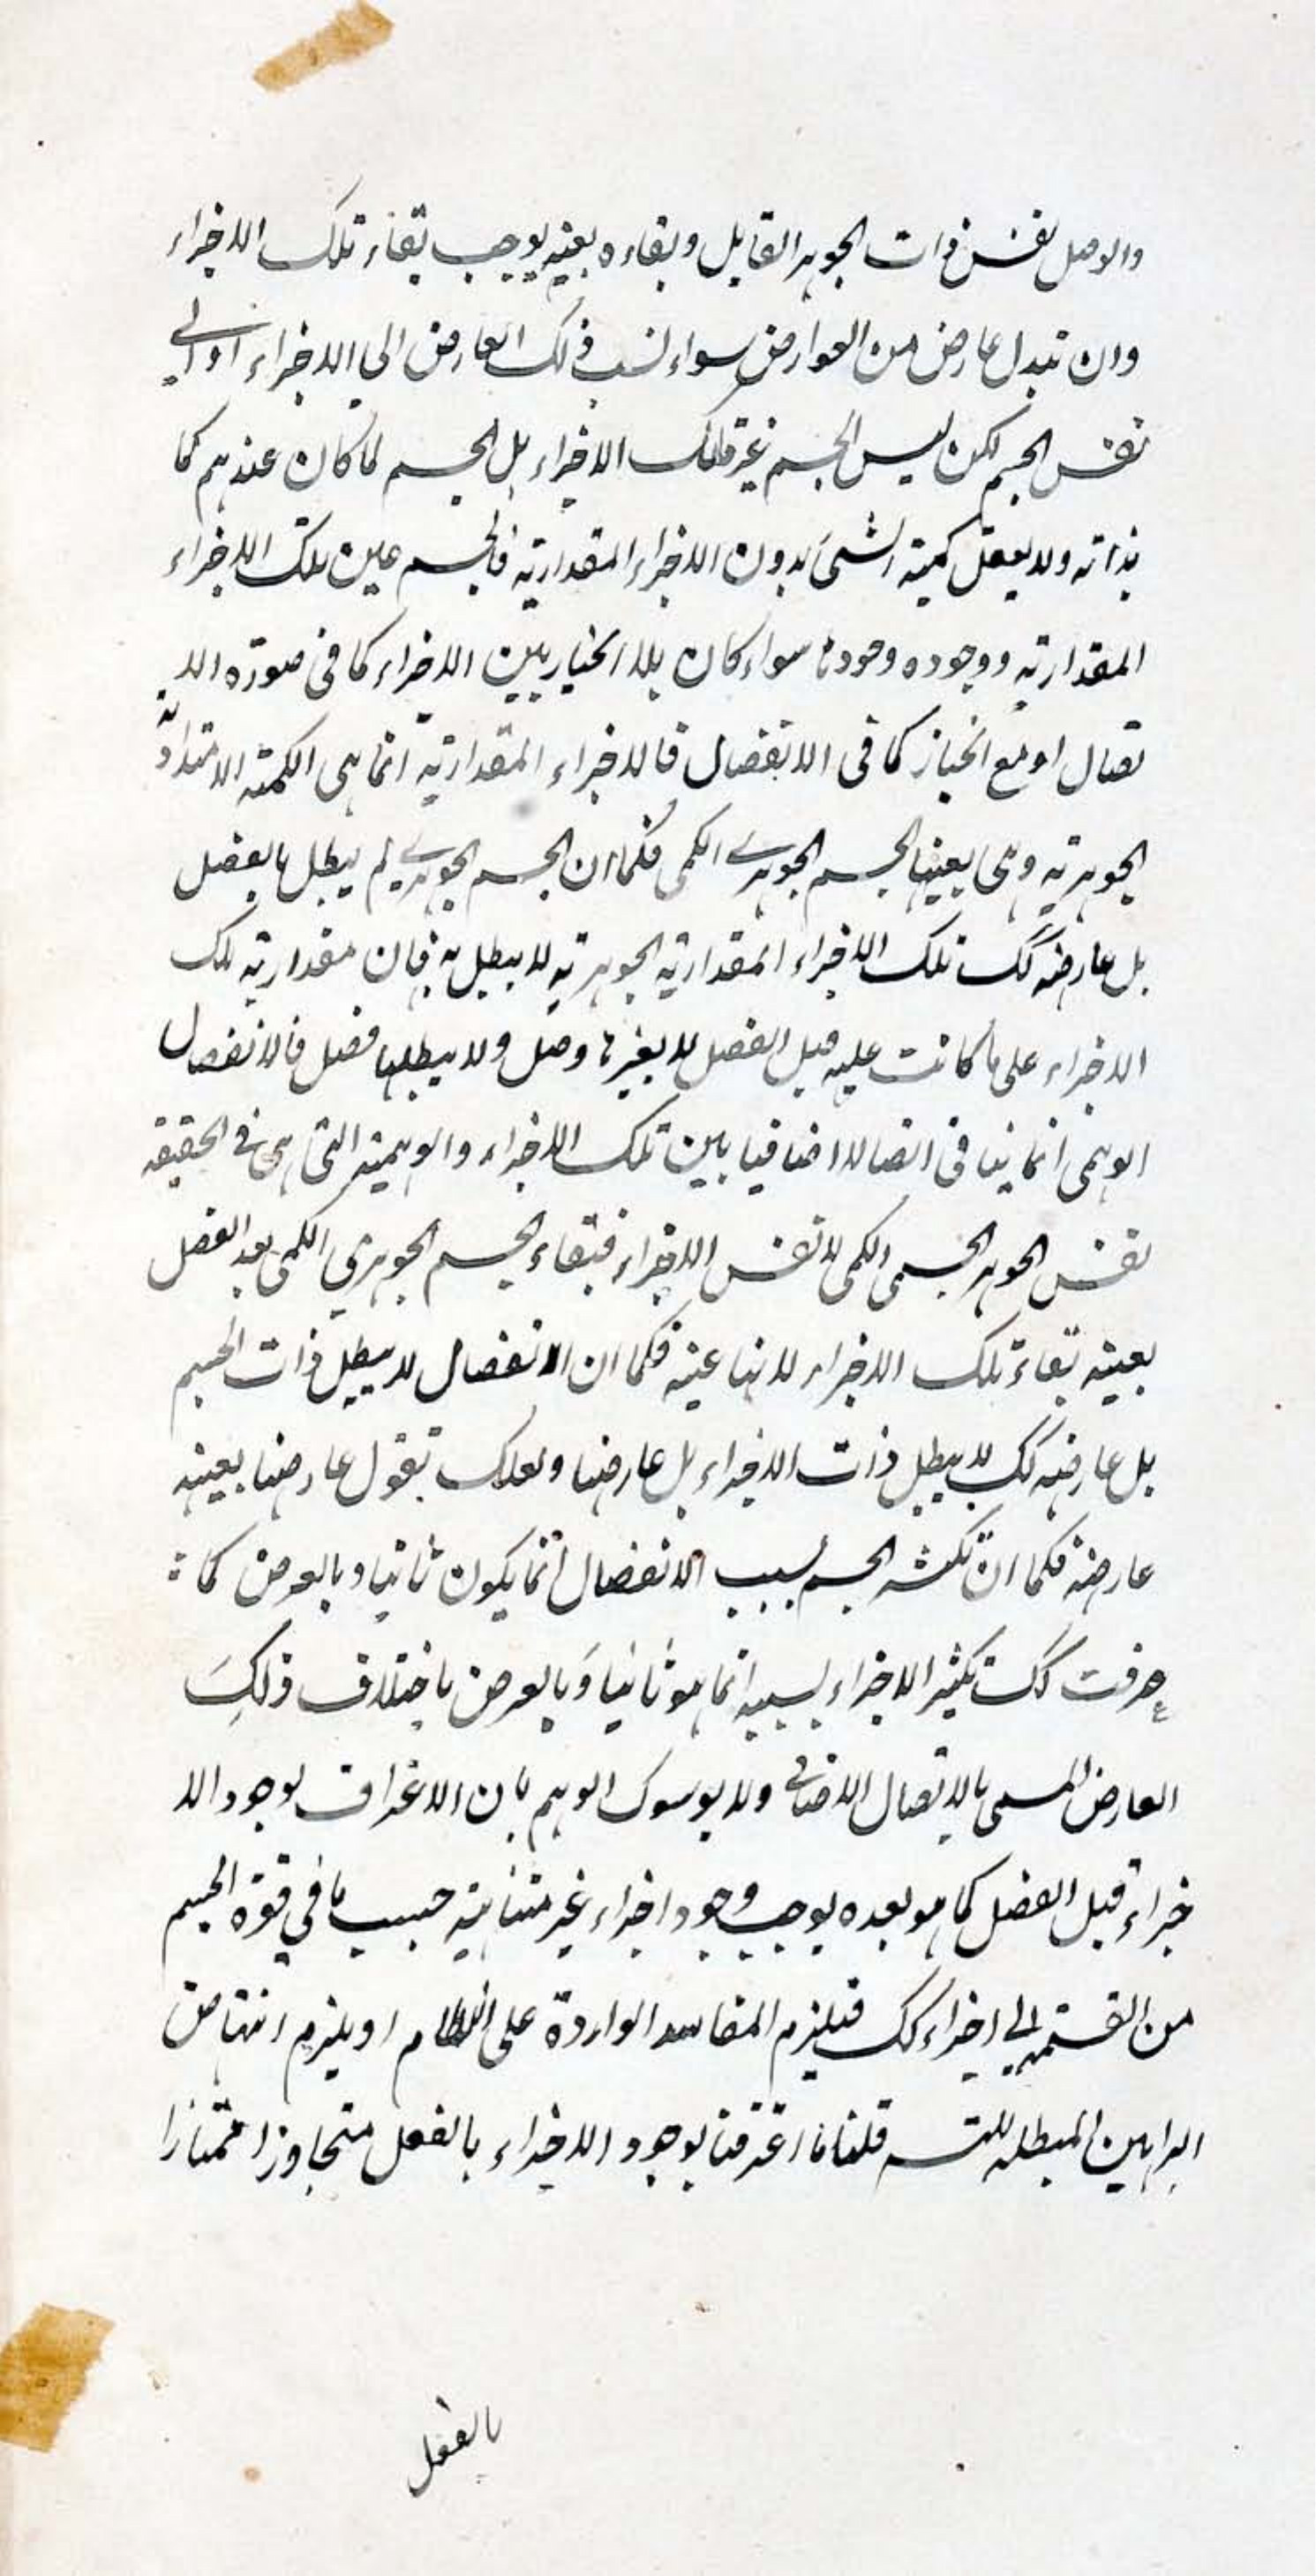 والوصل نفس ذات الجوهر القابل وبقاءه بعينه يوجب بقاء تلك الاجزاء
وان تبدل عارض من العوارض سواء نسب ذلك العارض الى الاجزاء او الى
نفس الجسم لكن ليس الجسم غير تلك الاجزاء بل الجسم لما كان عندهم كما
بذاته ولا يعقل كمية الشئ بدون الاجزاء المقدارية فالجسم عين تلك الاجزاء
المقدارية ووجوده وجودها سواء كان بلا انحياز بين الاجزاء كما فى صورة الا
تصال او مع انحياز كما فى الانفصال فالاجزاء المقدارية انما هى الكمية الامتدادية
الجوهرية وهى بعينها الجسم الجوهرى الكمى فكما ان الجسم الجوهرى لم يبطل بالفصل
بل عارضه كك تلك الاجزاء المقدارية الجوهرية لا يبطل به فان مقدارية تلك
الاجزاء على ما كانت عليه قبل الفصل لا يغيرها وصل ولا يبطلها فصل فالانفصال
الوهمى انما ينافى اتصالا اضافيا بين تلك الاجزاء والوهمية التى هى فى الحقيقه
نفس الجوهر الجسمى الكمى لا نفس الاجزاء فبقاء الجسم الجوهري الكمى بعد الفصل
بعينه بقاء تلك الاجزاء لانها عينه فكما ان الانفصال لا يبطل ذات الجسم
بل عارضه كك لا يبطل ذات الاجزاء بل عارضها ولعلك تقول عارضها بعينه
عارضه فكما ان تكثر الجسم بسبب الانفصال انما يكون ثانيا وبالعرض كما
عرفت كك تكثير الاجزاء بسببه انما هو ثانيا وبالعرض باختلاف ذلك
العارض المسمى بالاتصال الاضافى ولا يوسوك الوهم بان الاعتراف بوجود الا
جزاء قبل الفصل كما هو بعده يوجب وجود اجزاء غير متناهية حسب ما فى قوة الجسم
من القسمة الى اجزاء كك فيلزم المفاسد الواردة على النظام او يلزم انتهاض
البراهين المبطلة للتسـ قلنا ما اعترفنا بوجود الاجزاء بالفعل متجاوزا ممتازا
بالفعل